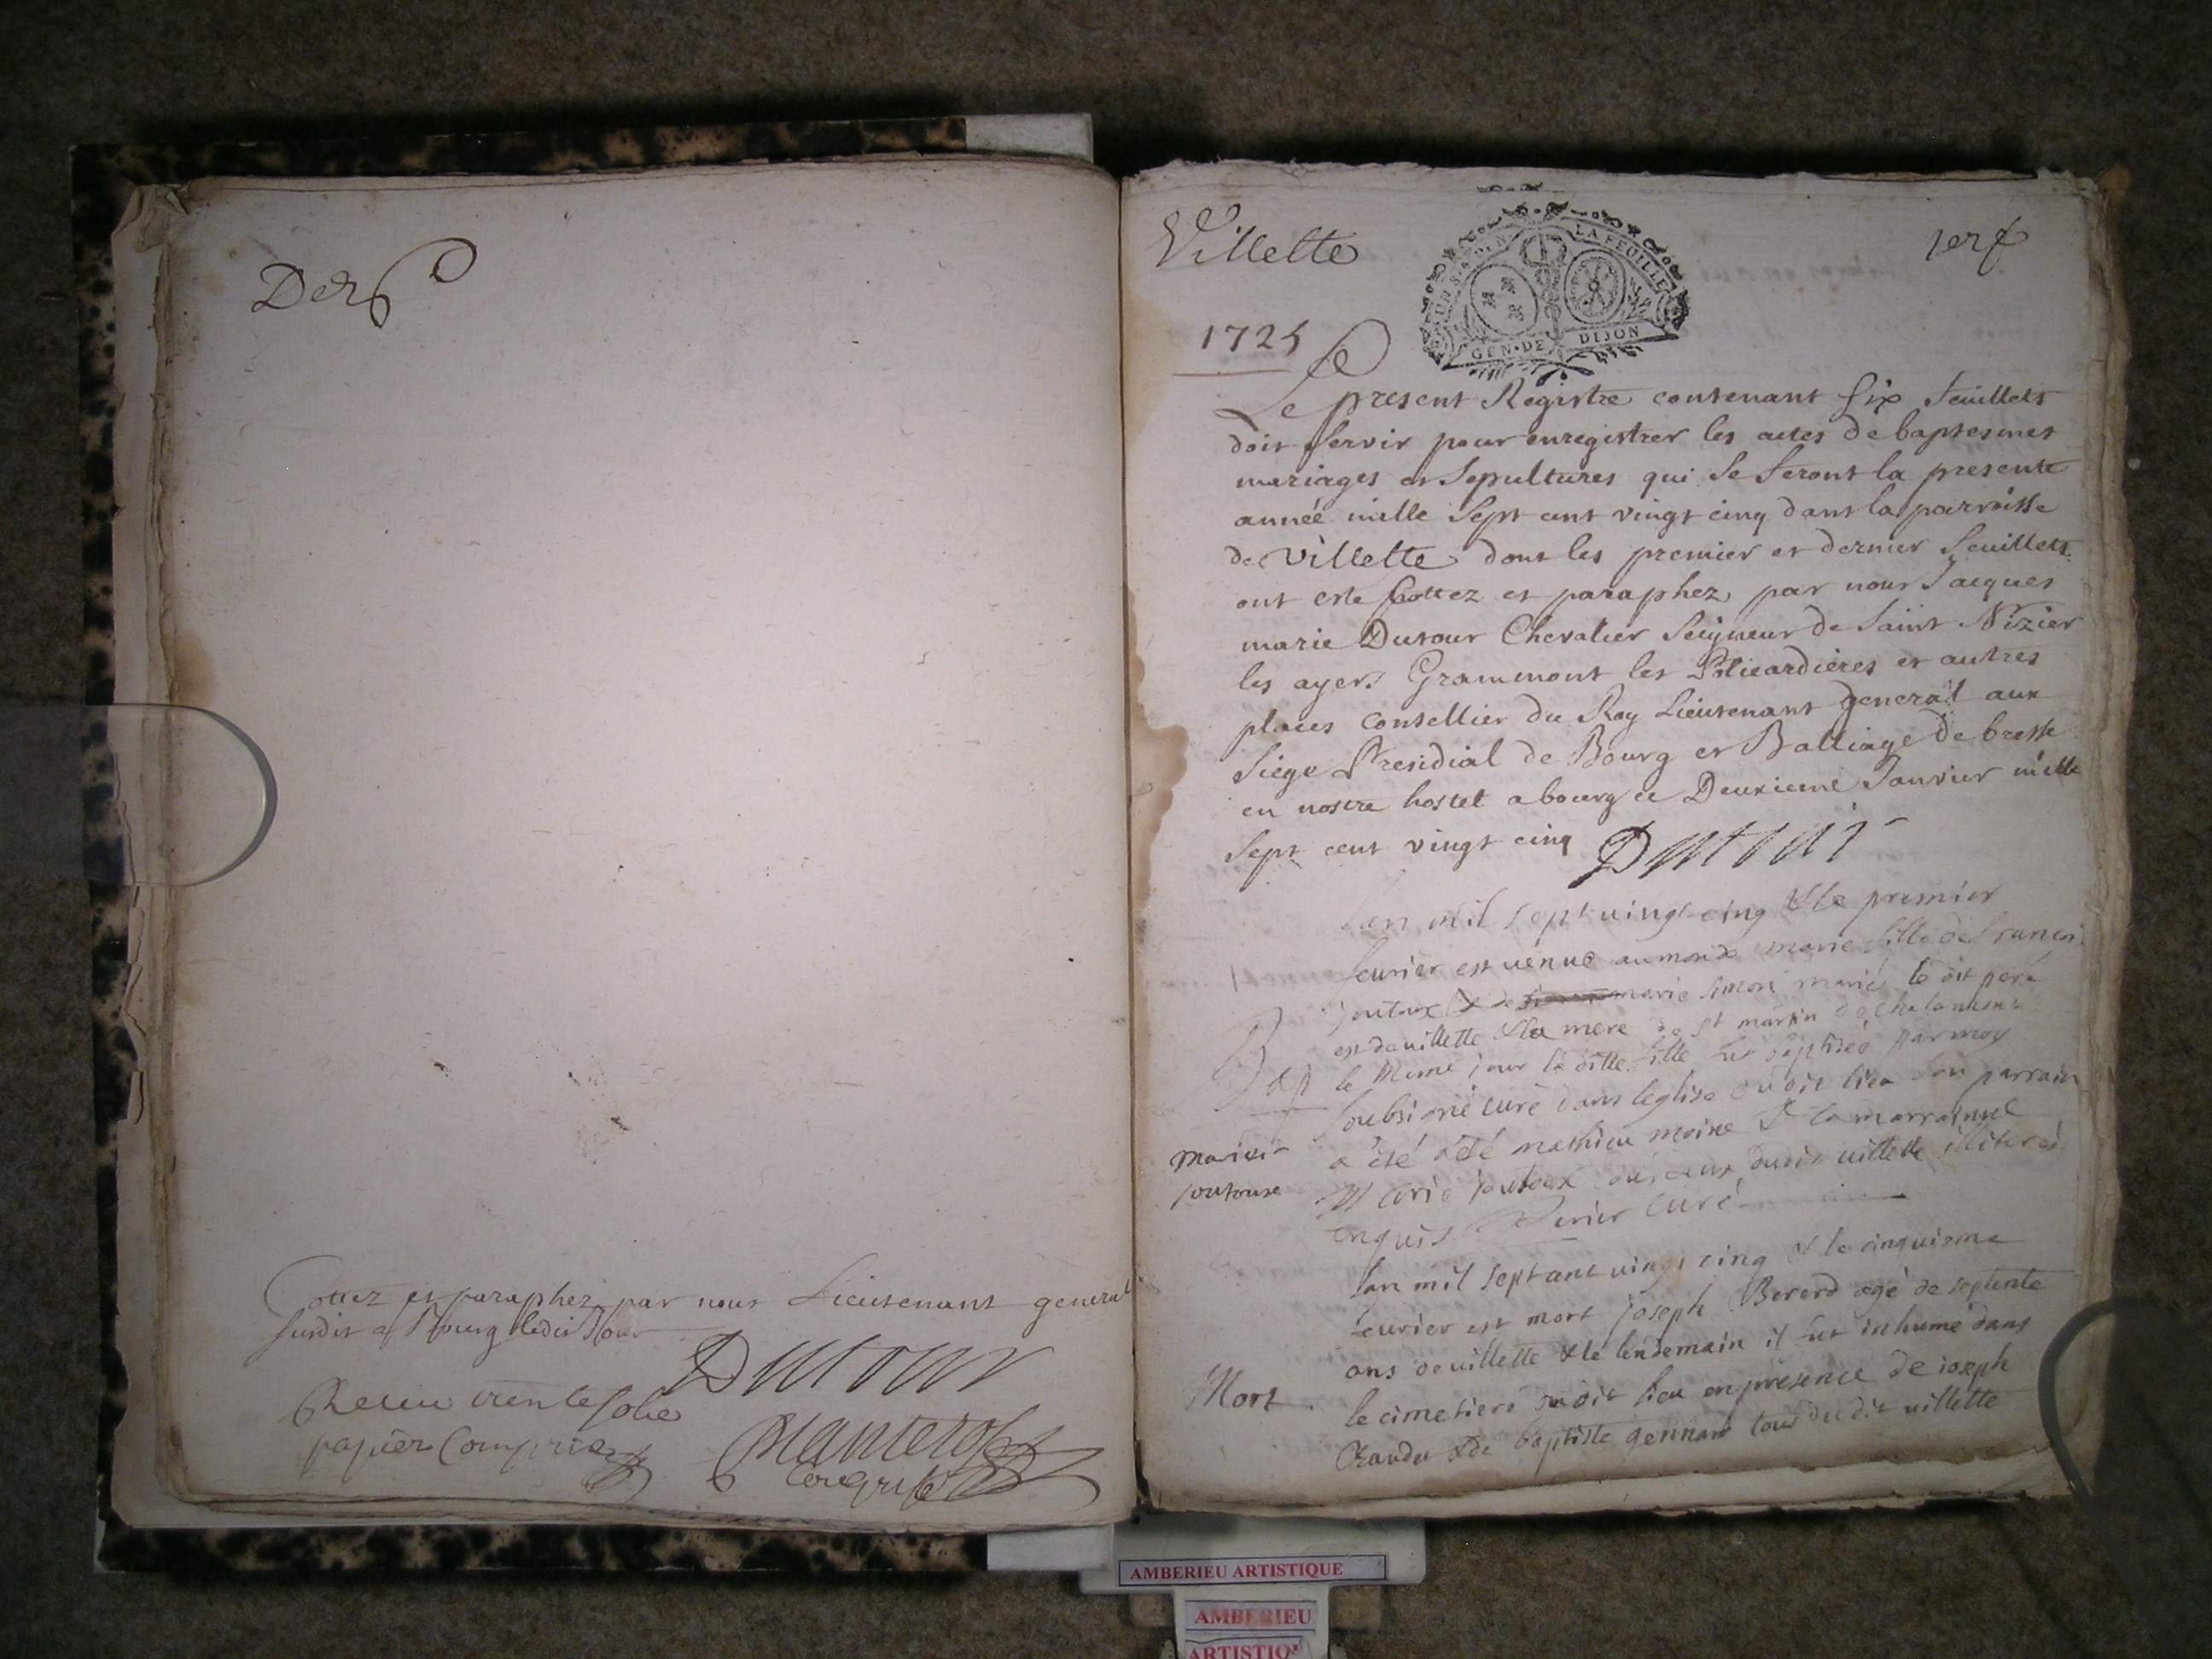 Der
Cottez et paraphez par nous Lieutenant general
susdit a Bourg ledit Jour
Dutour
Receu trente sols
papier compris
Villette
1er f
UN S. 4 D. LA FEUILLE
GEN. DE DIJON
1725
Le present Registre contenant six feuillets
doit servir pour enregistrer les actes de baptesmes
mariages et Sepultures qui se feront la presente
année mille Sept cent vingt cinq dans la parroisse
de Villette dont les premier et dernier feuillets
ont este Cottez et paraphez par nous Jacques
marie Dutour Chevalier Seigneur de Saint Nizier
les ayers Grammont les et autres
places Conseillier du Roy Lieutenant general aux
Siege Presidial de Bourg et Balliage de bresse
en nostre hostel a bourg ce Deuxieme Janvier mille
Sept cent vingt cinq Dutour
Lan mil sept vingt cinq & le premier
feurier est venue au monde marie fille de francoi
joutoux & de marie simon mariés le dit pere
est de uillette & la mere de st martin de
Bap le meme jour la ditte fille fut baptisée par moy
soubsigné curé dans leglise dudit lieu son parrain
Marie a été mathieu moine & la marrainne
joutouse Marie joutoux tous deux dudit uillette illiterés
enquis curé
lan mil sept cent vingt cinq & le cinquieme
feurier est mort joseph Bererd agé de septente
ans de uillette & le lendemain il fut inhumé dans
Mort le cimetiere dudit lieu en présence de joseph
& de baptiste gennard tous du dit uillette
AMBERIEU ARTISTIQUE
AMBERIEU
ARTISTIQU